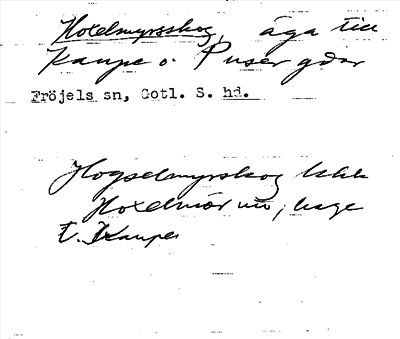 Hoxelmyrsskog, äga till
Kaupe o. Puser gdar
Fröjels sn, Gotl. S. hd.
Hogselmyrskog
Hoxelmör nu, hage
t. Kaupe